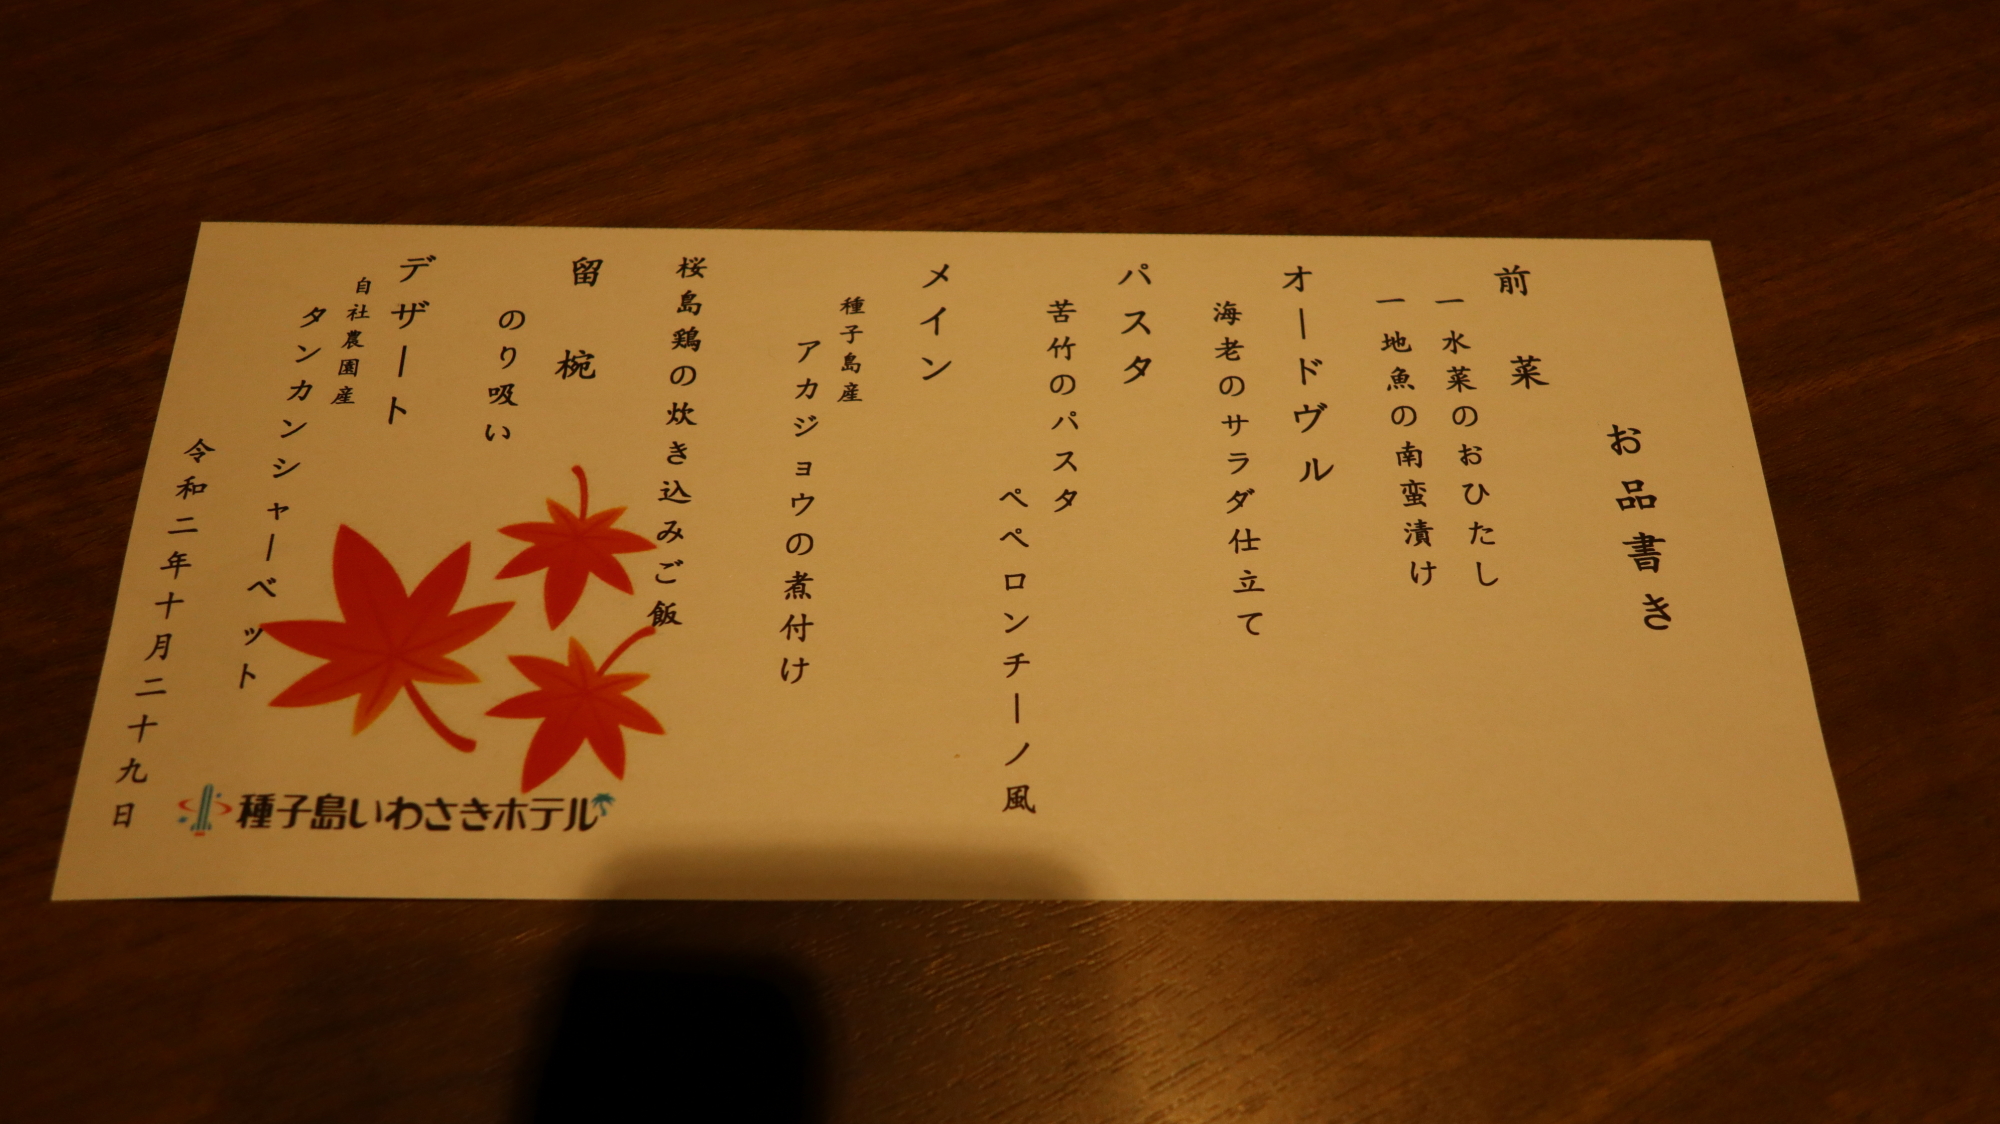 お品書き
前菜
一 水菜のおひたし
一 地魚の南蛮漬け
オードヴル
海老のサラダ仕立て
パスタ
苦竹のパスタ
ペペロンチーノ風
メイン
種子島産
アカジョウの煮付け
桜島鶏の炊き込みご飯
留椀
のり吸い
デザート
自社農園産
タンカンシャーベット
令和二年十月二十九日
種子島いわさきホテル